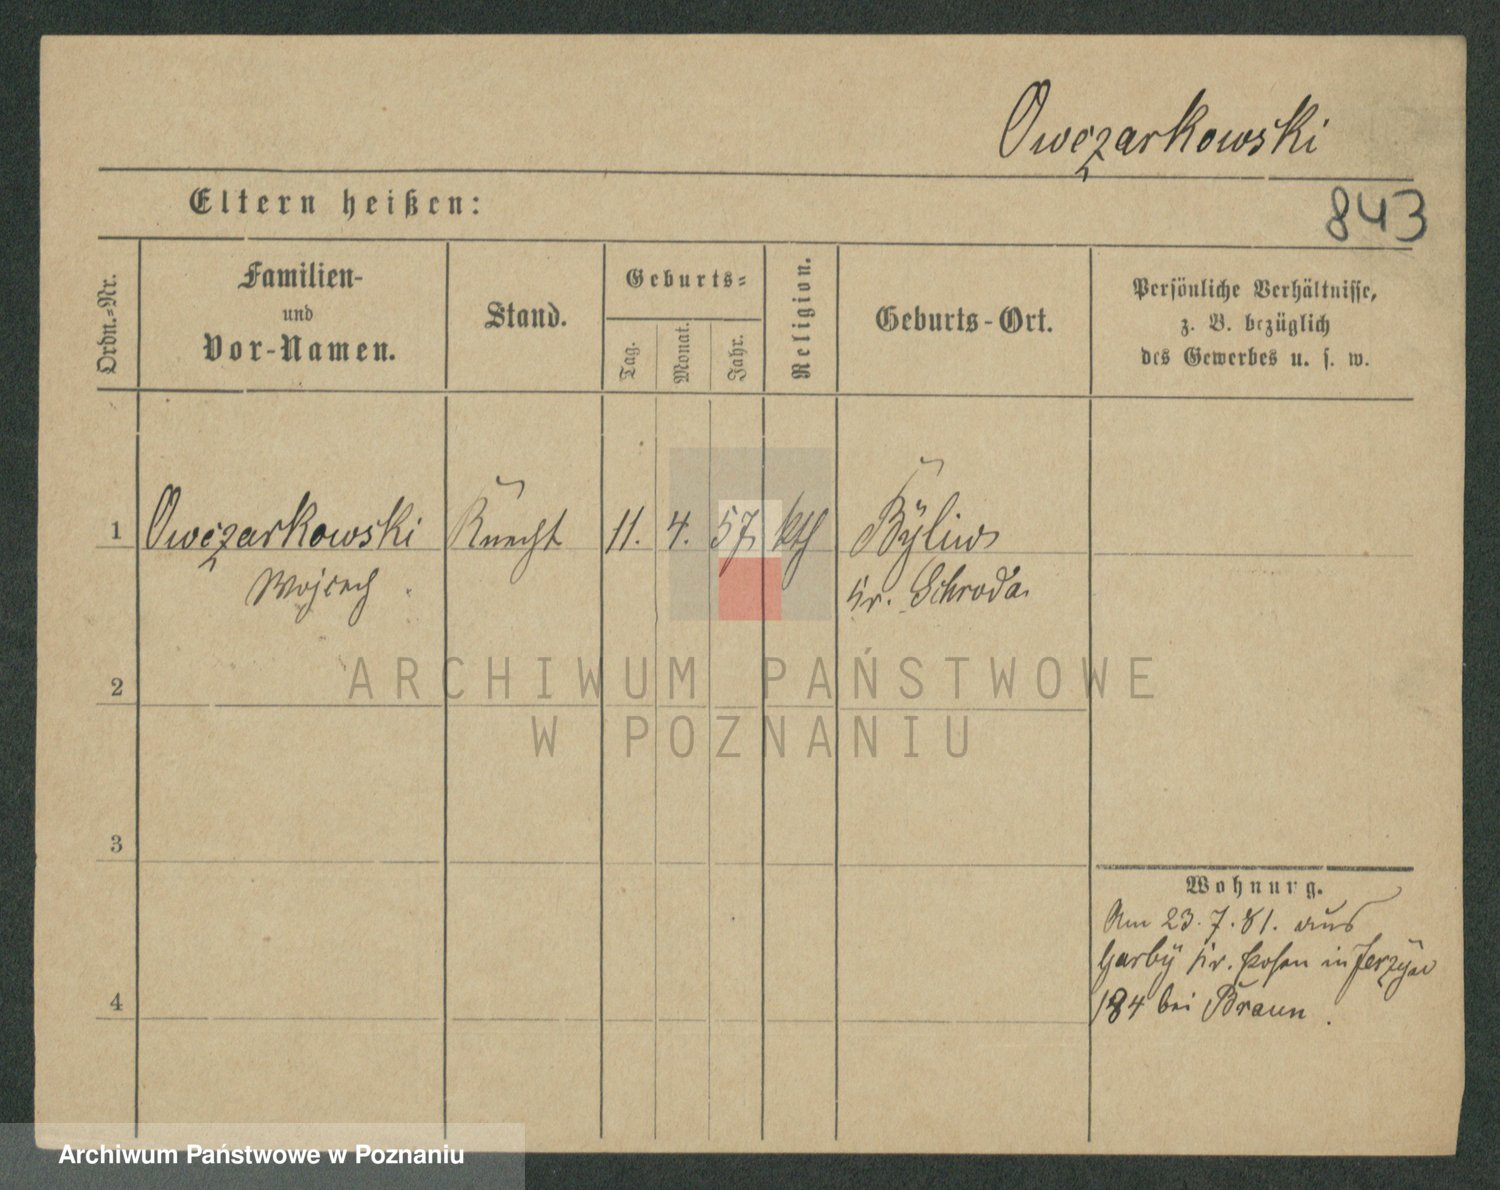 Owczarkowski
Eltern heißen:
843
Ordn.-Nr.
Familien-
und
Vor-Namen.
Stand.
Geburts-
Tag.
Monat.
Jahr.
Religion.
Geburts-Ort.
Persönliche Verhältnisse,
z. B. bezüglich
des Gewerbes u. s. w.
1 Owczarkowski Knecht 11. 4. 57 kth Bÿlin
Wojcech Kr. Schroda
2
ARCHIWUM PAŃSTWOWE
W POZNANIU
3
Wohnung.
Am 23. 7. 81. aus
Garbÿ Kr. Posen in
4
184 bei Braun.
Archiwum Państwowe w Poznaniu